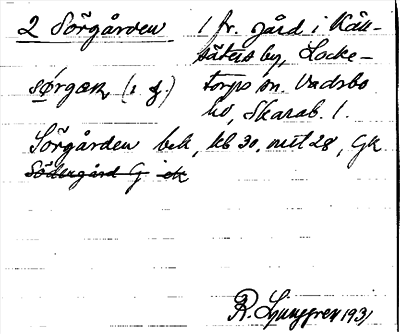 2 Sörgården 1 fr. gård i Käll-
säters by, Locke-
sø̀rgæɳ (2 f.) torps sn. Vadsbo
hd, Skarab. l.
Sörgården bek, kb 30, mtl 28, GK
Södergård G ek
R. Ljunggren 1931